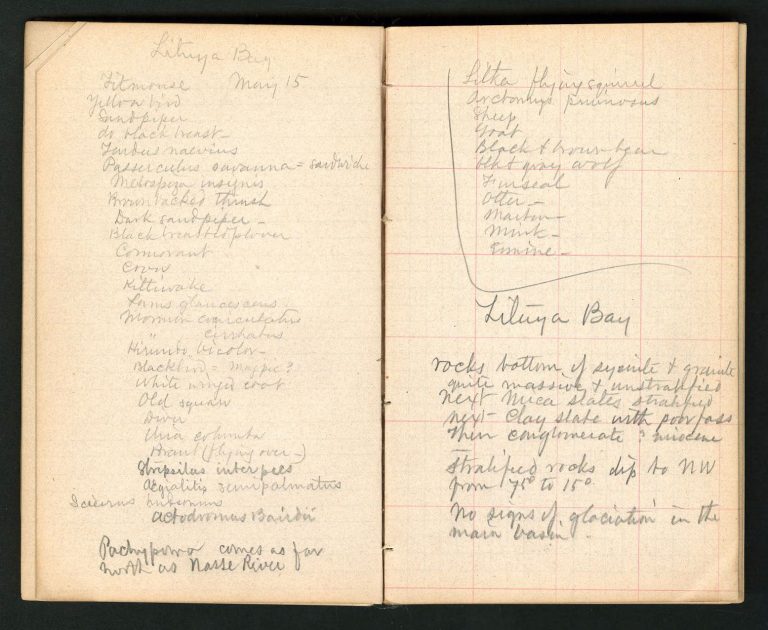 Lituya Bay
Titmouse May 15
Yellow bird
Sandpiper
do black breast —
Turdus naevius
Passerculus savanna = sandwiche
Melospiza insignis
Brown backed thrush
Dark sandpiper —
Black breasted plover
Cormorant
Kittiwake
Larus glaucescens
Mormon corniculatus
" cirrhatus
Hirundo bicolor —
Blackbird = magpie?
White winged coot
Old squaw
Diver
Uria columba
Brant (flying over —)
Strepsilas interpres
Aegialitis semipalmatus
Sciurus hudsonius
Actodromus Bairdii
comes as far
north as Nasse River
Sitka flying squirrel
Arctomys pruinosus
Sheep
Goat
Black & brown bear
blk & gray wolf
Fur seal
Otter —
Marten —
Mink —
Ermine —
Lituya Bay
rocks bottom of syenite & granite
quite massive & unstratified
next Mica slates stratified
next Clay slate with poor foss
Then conglomerate ? miocene
—
Stratified rocks dip to NW
from 75° to 15°
No signs of glaciation in the
main basin.